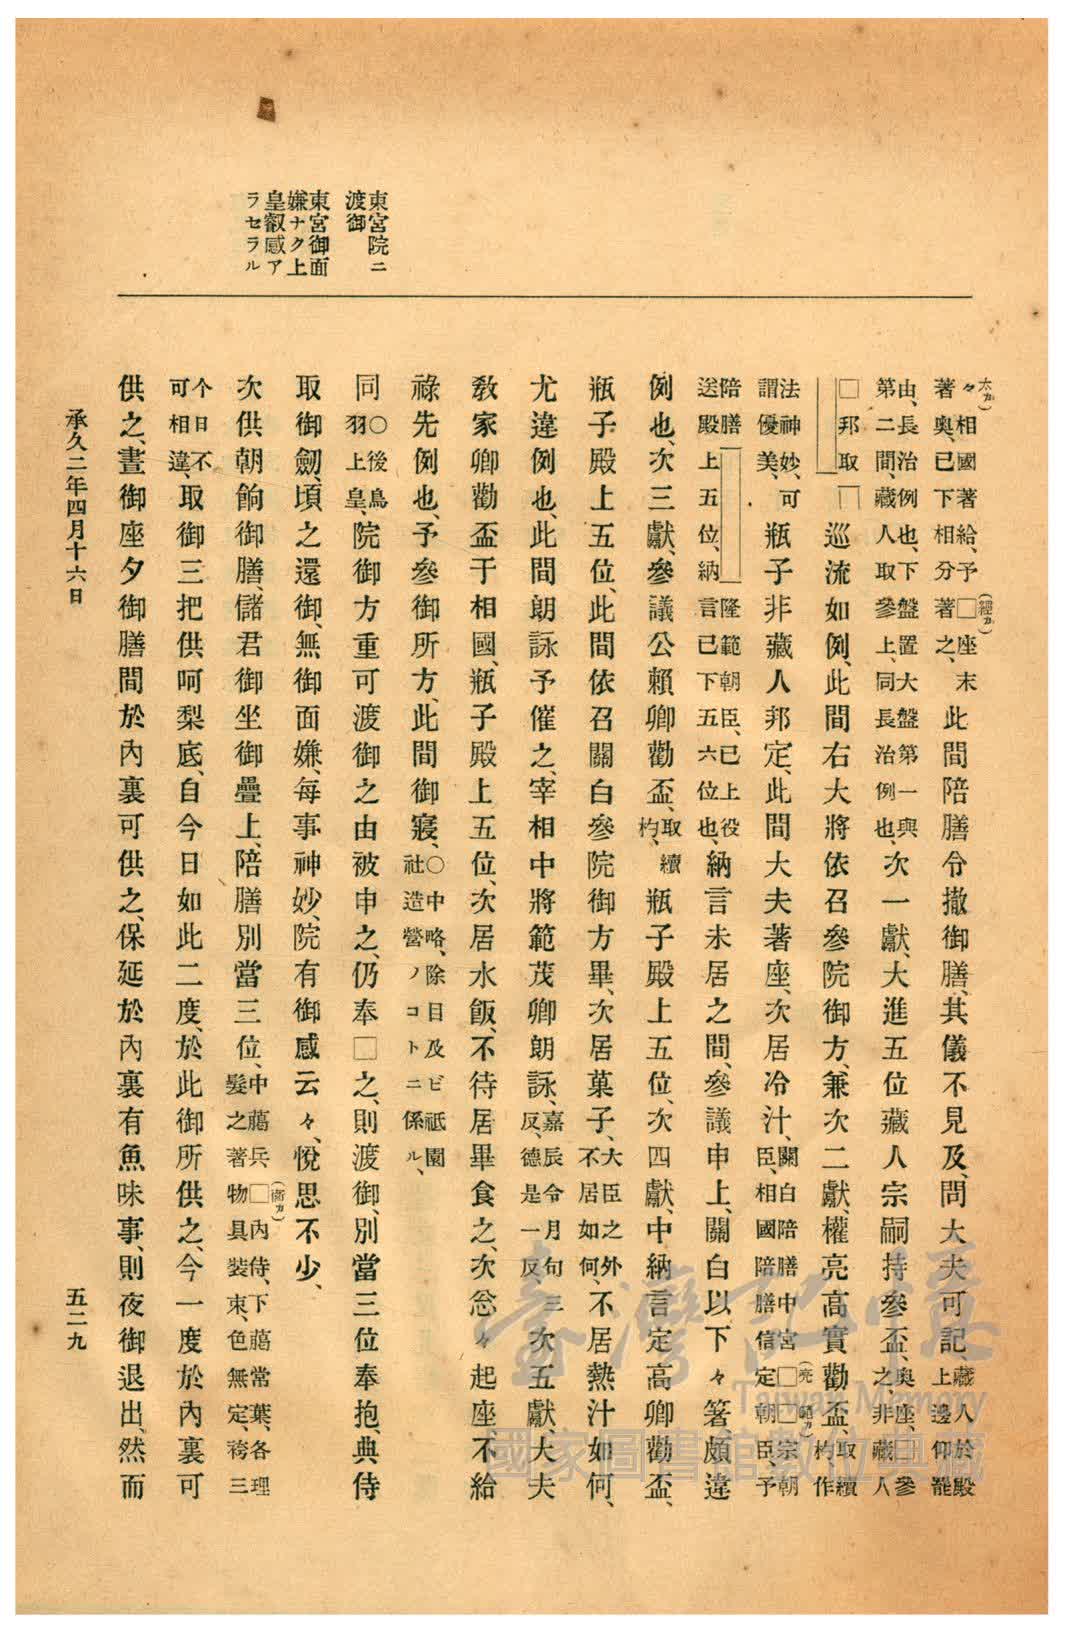 東宮院ニ
渡御
東宮御面
嫌ナク上
皇叡感ア
ラセラル
太カ)
(經カ)
々相國著給、予□座末
著奥、已下相分著之、
此間陪膳令撤御膳、其儀不見及、問大夫可記、
藏人於殿
上邊仰罷
由、長治例也、下盤置大盤第一與
第二間、藏人取參上、同長治例也、
次一獻、大進五位藏人宗嗣持參盃、
奥座、參
之、非藏人
□邦取
巡流如例、此間右大將依召參院御方、兼次二獻、權亮高實勸盃、
取續
杓、作
法神妙、可
謂優美、
瓶子非藏人邦定、此間大夫著座、次居冷汁、
關白陪膳中宮□□宗朝
臣、相國陪膳信定朝臣、予
(亮
陪膳
隆範朝臣、已上役
送殿上五位、納言已下五六位也、
納言未居之間、參議申上、關白以下々箸、頗違
例也、次三獻、參議公賴卿勸盃、
取續
杓、
瓶子殿上五位、次四獻、中納言定高卿勸盃、
瓶子殿上五位、此間依召關白參院御方畢、次居菓子、
大臣之外
不居如何、
不居熱汁如何、
尤違例也、此間朗詠予催之、宰相中將範茂卿朗詠、
嘉辰令月句三
反、德是一反、
次五獻、大夫
教家卿勸盃于相國、瓶子殿上五位、次居水飯、不待居畢食之、次忩々起座、不給
祿先例也、予參御所方、此間御寢、
○中略、除目及ビ祇園
社造營ノコトニ係ル、
同
○後鳥
羽上皇、
院御方重可渡御之由被申之、仍奉□之、則渡御、別當三位奉抱、典侍
取御劔、頃之還御、無御面嫌、每事神妙、院有御感云々、悅思不少、
次供朝餉御膳、儲君御坐御疊上、陪膳別當三位、
中﨟兵□內侍、下﨟常葉、各理
髮之著物具裝束、色無定、袴三
(衛カ)
个日不
可相違、
取御三把供呵梨底、自今日如此二度、於此御所供之、今一度於內裏可
供之、晝御座夕御膳間於內裏可供之、保延於內裏有魚味事、則夜御退出、然而
承久二年四月十六日
五二九
臺灣記憶
Taiwan Memory
國家圖書館數位典藏